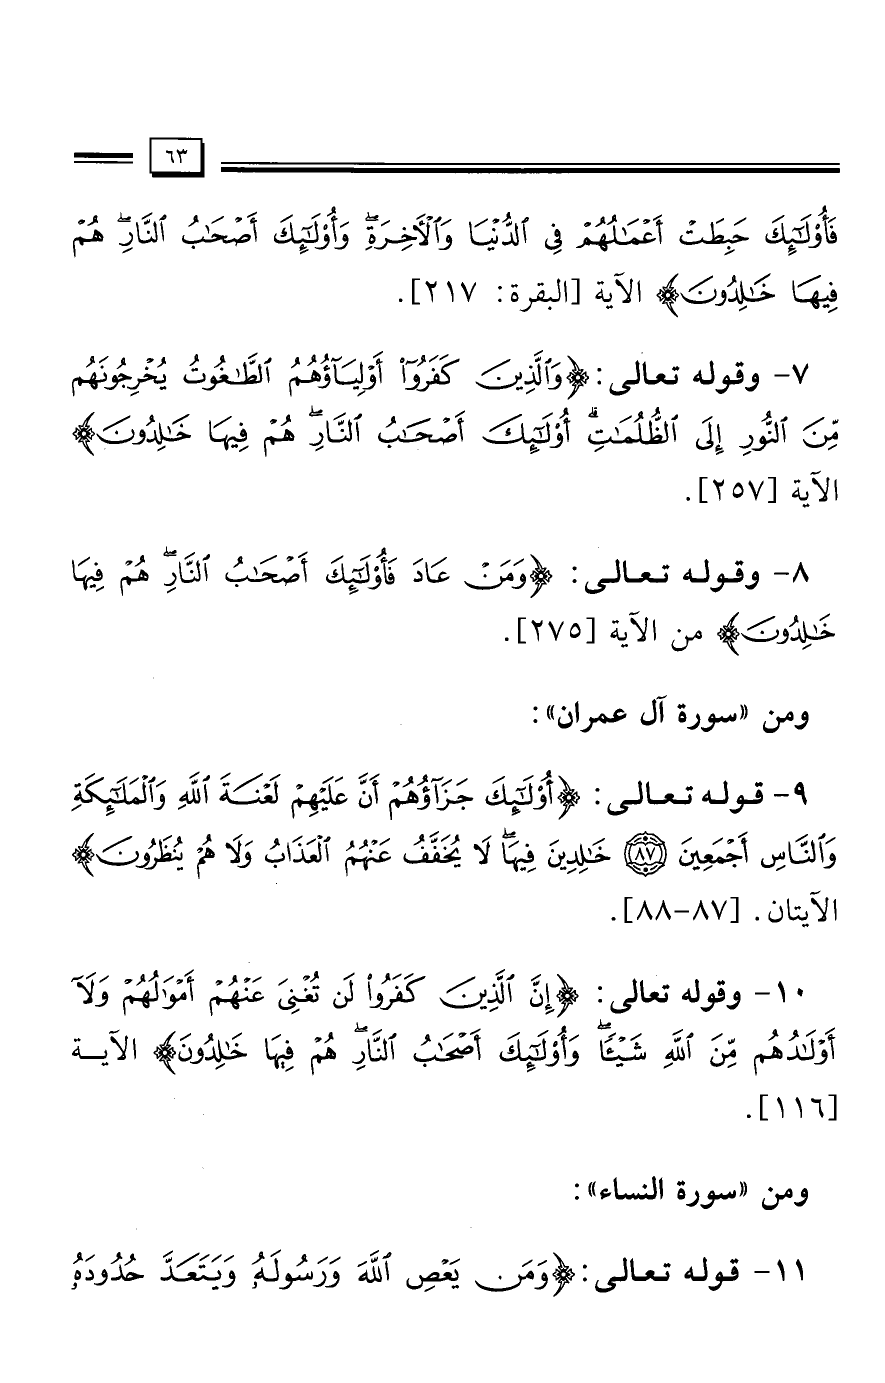 ٦٣
فَأُوْلَٰٓئِكَ حَبِطَتْ أَعْمَٰلُهُمْ فِي ٱلدُّنْيَا وَٱلْأَخِرَةِۖ وَأُوْلَٰٓئِكَ أَصْحَٰبُ ٱلنَّارِۖ هُمْ
فِيهَا خَٰلِدُونَ﴾ الآية [البقرة: ٢١٧].
٧- وقوله تعالى: ﴿وَٱلَّذِينَ كَفَرُوٓاْ أَوْلِيَآؤُهُمُ ٱلطَّٰغُوتُ يُخْرِجُونَهُم
مِّنَ ٱلنُّورِ إِلَى ٱلظُّلُمَٰتِۗ أُوْلَٰٓئِكَ أَصْحَٰبُ ٱلنَّارِۖ هُمْ فِيهَا خَٰلِدُونَ﴾
الآية [٢٥٧].
٨- وقوله تعالى: ﴿وَمَنْ عَادَ فَأُوْلَٰٓئِكَ أَصْحَٰبُ ٱلنَّارِۖ هُمْ فِيهَا
خَٰلِدُونَ﴾ من الآية [٢٧٥].
ومن «سورة آل عمران»:
٩- قوله تعالى: ﴿أُوْلَٰٓئِكَ جَزَآؤُهُمْ أَنَّ عَلَيْهِمْ لَعْنَةَ ٱللَّهِ وَٱلْمَلَٰٓئِكَةِ
وَٱلنَّاسِ أَجْمَعِينَ ٨٧ خَٰلِدِينَ فِيهَاۖ لَا يُخَفَّفُ عَنْهُمُ ٱلْعَذَابُ وَلَا هُمْ يُنظَرُونَ﴾
الآيتان. [٨٧-٨٨].
١٠- وقوله تعالى: ﴿إِنَّ ٱلَّذِينَ كَفَرُواْ لَن تُغْنِيَ عَنْهُمْ أَمْوَٰلُهُمْ وَلَآ
أَوْلَٰدُهُم مِّنَ ٱللَّهِ شَيْـًٔاۖ وَأُوْلَٰٓئِكَ أَصْحَٰبُ ٱلنَّارِۖ هُمْ فِيهَا خَٰلِدُونَ﴾ الآيـة
[١١٦].
ومن «سورة النساء»:
١١- قوله تعالى: ﴿وَمَن يَعْصِ ٱللَّهَ وَرَسُولَهُۥ وَيَتَعَدَّ حُدُودَهُۥ